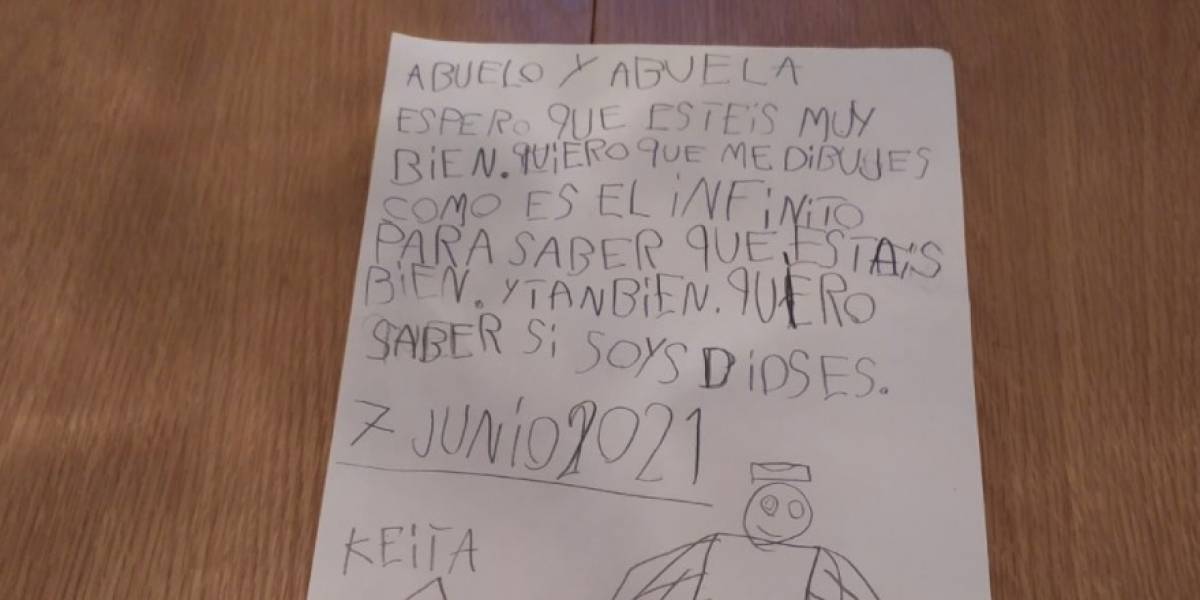 ABUELO Y ABUELA
ESPERO QUE ESTEIS MUY
BIEN. QUIERO QUE ME DIBUJES
COMO ES EL INFINITO
PARA SABER QUE ESTAIS
BIEN. Y TANBIEN. QUIERO
SABER SI SOYS DIOSES.
7 JUNIO 2021
KEITA